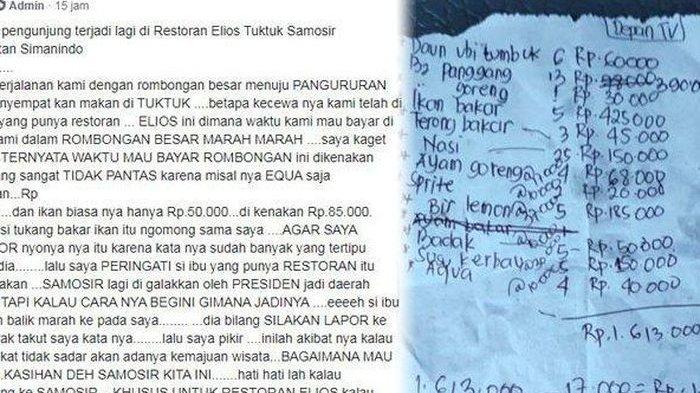 Admin
15 jam
pengunjung terjadi lagi di Restoran Elios Tuktuk Samosir
Simanindo
....
erjalanan kami dengan rombongan besar menuju PANGURURAN
nyempat kan makan di TUKTUK ....betapa kecewa nya kami telah di
yang punya restoran ... ELIOS ini dimana waktu kami mau bayar di
ami dalam ROMBONGAN BESAR MARAH MARAH ....saya kaget
TERNYATA WAKTU MAU BAYAR ROMBONGAN ini dikenakan
ang sangat TIDAK PANTAS karena misal nya EQUA saja
an...Rp
...dan ikan biasa nya hanya Rp.50.000...di kenakan Rp.85.000.
si tukang bakar ikan itu ngomong sama saya ....AGAR SAYA
OR nyonya nya itu karena kata nya sudah banyak yang tertipu
dia........lalu saya PERINGATI si ibu yang punya RESTORAN itu
akan ...SAMOSIR lagi di galakkan oleh PRESIDEN jadi daerah
TAPI KALAU CARA NYA BEGINI GIMANA JADINYA ....eeeeh si ibu
n balik marah ke pada saya........ ...dia bilang SILAKAN LAPOR ke
ak takut saya kata nya.......lalu saya pikir ....inilah akibat nya kalau
kat tidak sadar akan adanya kemajuan wisata...BAGAIMANA MAU
KASIHAN DEH SAMOSIR KITA INI.......hati hati lah kalau
ng ke SAMOSIR KHUSUS UNTUK RESTORAN ELIOS kalau
Depan TV
Daun ubi tumbuk 6 Rp.60000
B2 panggang 13
goreng 1 Rp 30 000
Ikan bakar 5 Rp.425000
Terong bakar 3 Rp 45 000
Nasi 25 Rp.150 000
Ayam goreng 4 Rp 68 000
Sprite Rp 20.000
Bir lemon 5 Rp.185 000
Ayam bakar
Badak 5 Rp.50.000
Susu kerbau 5 Rp.150000
Aqua 4 Rp 40 000
Rp.1.613 000
1.613.000 17.000 = Rp.